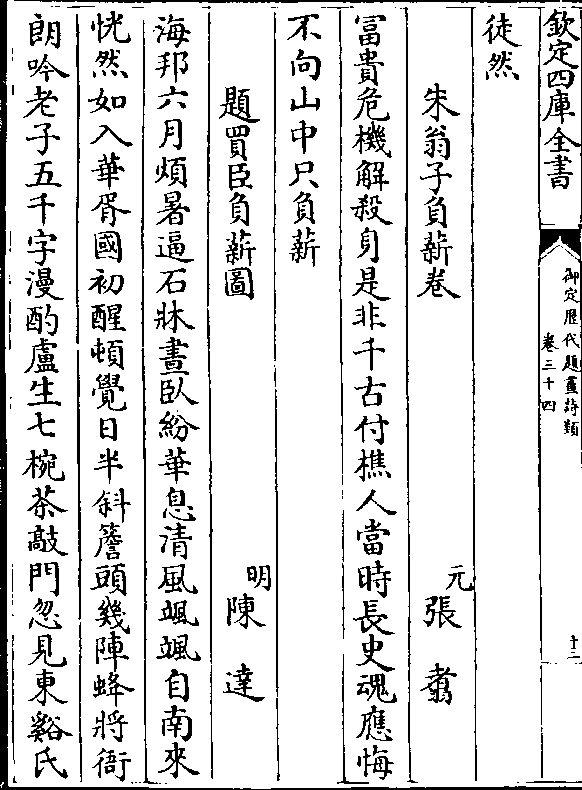 欽定四庫全書
御定歷代題畫詩類
卷三十四
十二
徒然
朱翁子負薪卷
元
張翥
富貴危機解殺身是非千古付樵人當時長史魂應悔
不向山中只負薪
題買臣負薪圖
明
陳達
海邦六月煩暑逼石牀晝臥紛華息清風颯颯自南來
恍然如入華胥國初醒頓覺日半斜簷頭幾陣蜂將衙
朗吟老子五千字漫酌盧生七椀茶敲門忽見東谿氏